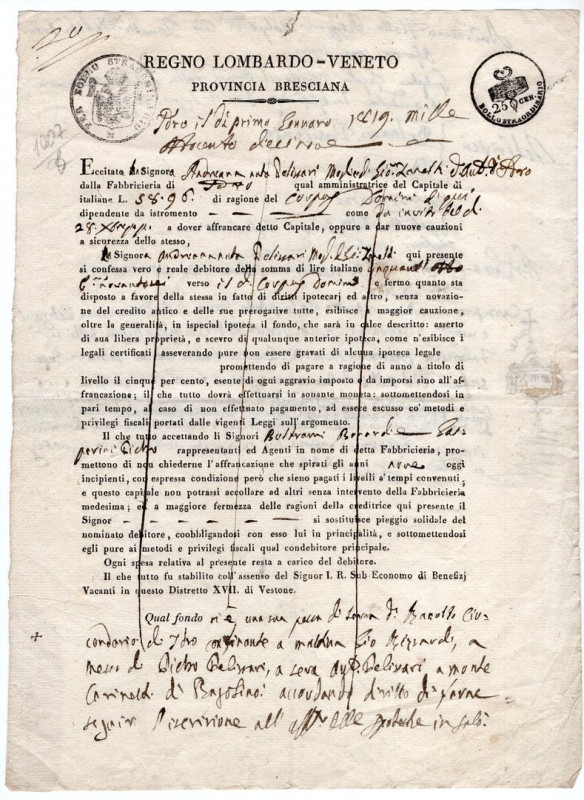 REGNO LOMBARDO-VENETO
PROVINCIA BRESCIANA
25 CEN.
BOLLO STRAORDINARIO
Idro il dì primo Gennaro 1819. mille
ottocento
Eccitato la Signora Andreanna Moglie di Gio: Zanetti
dalla Fabbricieria di Idro qual amministratrice del Capitale di
italiane L. 58.96. di ragione del Corpus Domini
dipendente da istromento — — — — come
28. a dover affrancare detto Capitale, oppure a dar nuove cauzioni
a sicurezza dello stesso,
la Signora Andreanna Zanetti qui presente
si confessa vero e reale debitore della somma di lire italiane cinquant'otto
C. novantasei verso il Corpus Domini e fermo quanto sta
disposto a favore della stessa in fatto di diritti ipotecarj ed altro, senza novazione
del credito antico e delle sue prerogative tutte, esibisce a maggior cauzione,
oltre la generalità, in ispecial ipoteca il fondo, che sarà in calce descritto: asserto
di sua libera proprietà, e scevro di qualunque anterior ipoteca, come n'esibisce i
legali certificati asseverando pure non essere gravati di alcuna ipoteca legale
promettendo di pagare a ragione di anno a titolo di
livello il cinque per cento, esente di ogni aggravio imposto e da imporsi sino all'affrancazione;
il che tutto dovrà effettuarsi in sonante moneta: sottomettendosi in
pari tempo, al caso di non effettuato pagamento, ad essere escusso co' metodi e
privilegi fiscali portati dalle vigenti Leggi sull'argomento.
Il che tutto accettando li Signori
Pietro rappresentanti ed Agenti in nome di detta Fabbricieria, promettono
di non chiederne l'affrancazione che spirati gli anni nove oggi
incipienti, con espressa condizione però che sieno pagati i livelli a' tempi convenuti;
e questo capitale non potrassi accollare ad altri senza intervento della Fabbricieria
medesima; ed a maggiore fermezza delle ragioni della creditrice qui presente il
Signor — — — — — si sostituisce pieggio solidale del
nominato debitore, coobbligandosi con esso lui in principalità, e sottomettendosi
egli pure ai metodi e privilegi fiscali qual condebitore principale.
Ogni spesa relativa al presente resta a carico del debitore.
Il che tutto fu stabilito coll'assenso del Signor I. R. Sub-Economo di Benefizj
Vacanti in questo Distretto XVII. di Vestone.
Qual fondo si è una sua pezza di terra
di Idro confinante a mattina Gio
di Pietro Pelizari, a sera Pelizari a monte
di accordando diritto di
l'iscrizione all' delle Ipoteche in Salò.